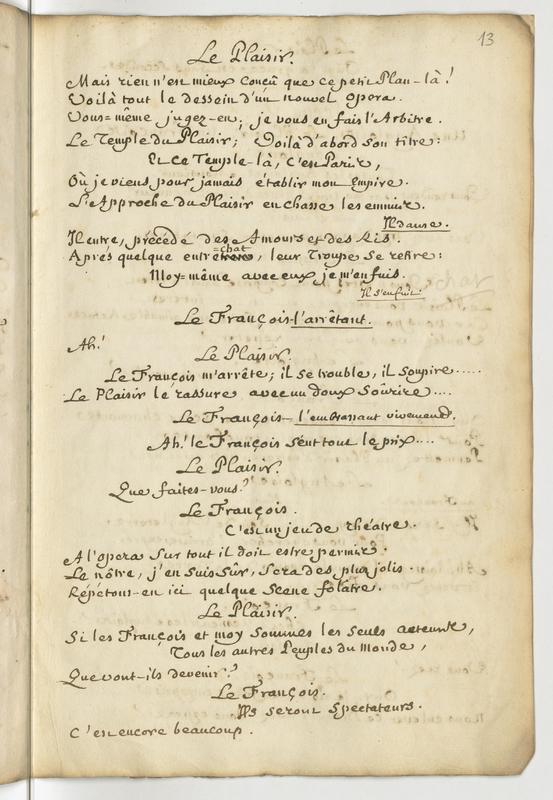 13
Le Plaisir.
Mais rien n'est mieux conçû que ce petit Plan-là!
Voilà tout le dessein d'un nouvel opera.
Vous=même jugez-en; je vous en fais l'Arbitre.
Le Temple du Plaisir; Voilà d'abord son titre:
Et ce Temple-là, c'est Paris,
Où je viens pour jamais établir mon Empire.
L'Approche du Plaisir en chasse les ennuis.
Il danse.
Il entre, précédé des Amours et des Ris.
Aprés quelque entre=chat, leur Troupe se retire:
Moy=même avec eux je m'enfuis.
Il s'enfuit.
Le François l'arrêtant.
Ah!
Le Plaisir.
Le François m'arrête; il se trouble, il soupire.....
Le Plaisir le rassure avec un doux soûrire....
Le François - l'embrassant vivement.
Ah! le François sent tout le prix....
Le Plaisir.
Que faites-vous?
Le François.
C'est un jeu de theatre.
A l'opera sur tout il doit estre permis.
Le nôtre, j'en suis sûr, sera des plus jolis.
Répétons-en ici quelque Scene folâtre.
Le Plaisir.
Si les François et moy sommes les seuls acteurs,
Tous les autres Peuples du Monde,
Que vont-ils devenir?
Le François.
Ils seront spectateurs.
C'est encore beaucoup.